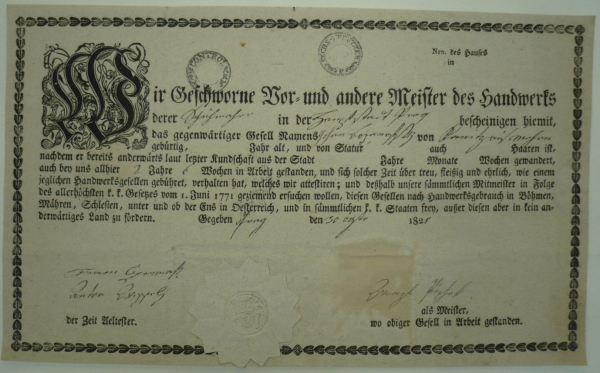 Nro. des Hauses
in
Wir Geschworne Vor- und andere Meister des Handwerks
derer Schuhmacher in der Hauptstadt Prag bescheinigen hiemit,
daß gegenwärtiger Gesell Namens von
gebürtig, Jahr alt, und von Statur auch Haaren ist.
nachdem er bereits anderwärts laut letzter Kundschaft aus der Stadt Jahre Monate Wochen gewandert,
auch bey uns allhier Jahre 6 Wochen in Arbeit gestanden, und sich solcher Zeit über treu, fleißig und ehrlich, wie einem
jeglichen Handwerksgesellen gebühret, verhalten hat, welches wir attestiren; und deßhalb unsere sämmtlichen Mitmeister in Folge
des allerhöchsten k. k. Gesetzes vom 1. Juni 1771 geziemend ersuchen wollen, diesen Gesellen nach Handwerksgebrauch in Böhmen,
Mähren, Schlesien, unter und ob der Ens in Oesterreich, und in sämmtlichen k. k. Staaten frey, außer diesen aber in kein an-
derwärtiges Land zu fördern. Gegeben Prag den 30 182
der Zeit Aeltester.
als Meister,
wo obiger Gesell in Arbeit gestanden.